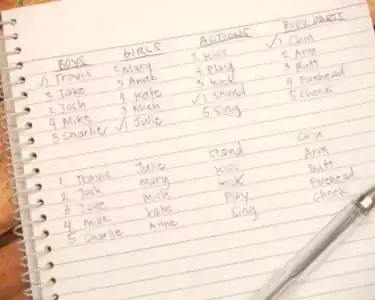 BOYS GIRLS ACTIONS BODY PARTS
✓1 Travis 2 Mary 2 Kiss ✓1 Chin
3 Jake 5 Anne 4 Play 2 Arm
2 Josh 4 Kate 3 Kick 3 Butt
4 Mike 3 Mich ✓1 Stand 4 Forehead
5 Charlie ✓1 Julie 5 Sing 5 Cheek
1 Travis Julie Stand Chin
2 Josh Mary Kiss Arm
3 Jake Mich Kick Butt
4 Mike Kate Play Forehead
5 Charlie Anne Sing Cheek